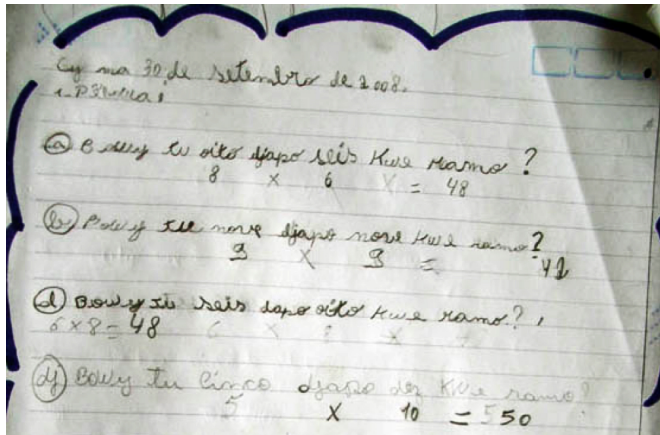 Cy ma 30 de setembro de 2008.
a Bowy tu oito djapo seis Kwe ramo?
8 x 6 = 48
b Bowy tu nove djapo nove Kwe ramo?
9 x 9 =
d Bowy tu seis dapo oito Kwe ramo?
6x8=48
d Bowy tu Cinco djapo dez Kwe ramo?
5 x 10 = 550